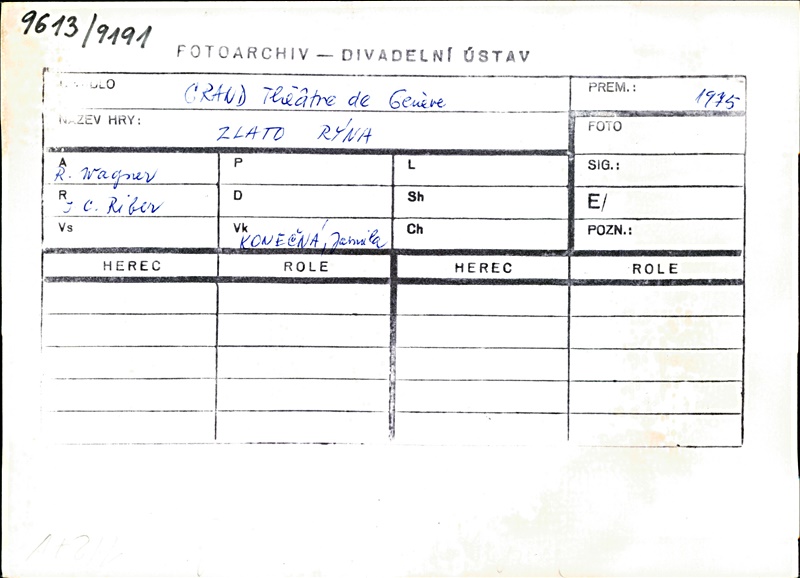 9613/9191
FOTOARCHIV — DIVADELNÍ ÚSTAV
GRAND Théâtre de Genève
PREM.: 1975
NÁZEV HRY: ZLATO RÝNA
FOTO
A R. Wagner
P
L
SIG.:
R J C. Riber
D
Sh
E/
Vs
Vk KONEČNÁ, Jarmila
Ch
POZN.:
HEREC ROLE HEREC ROLE